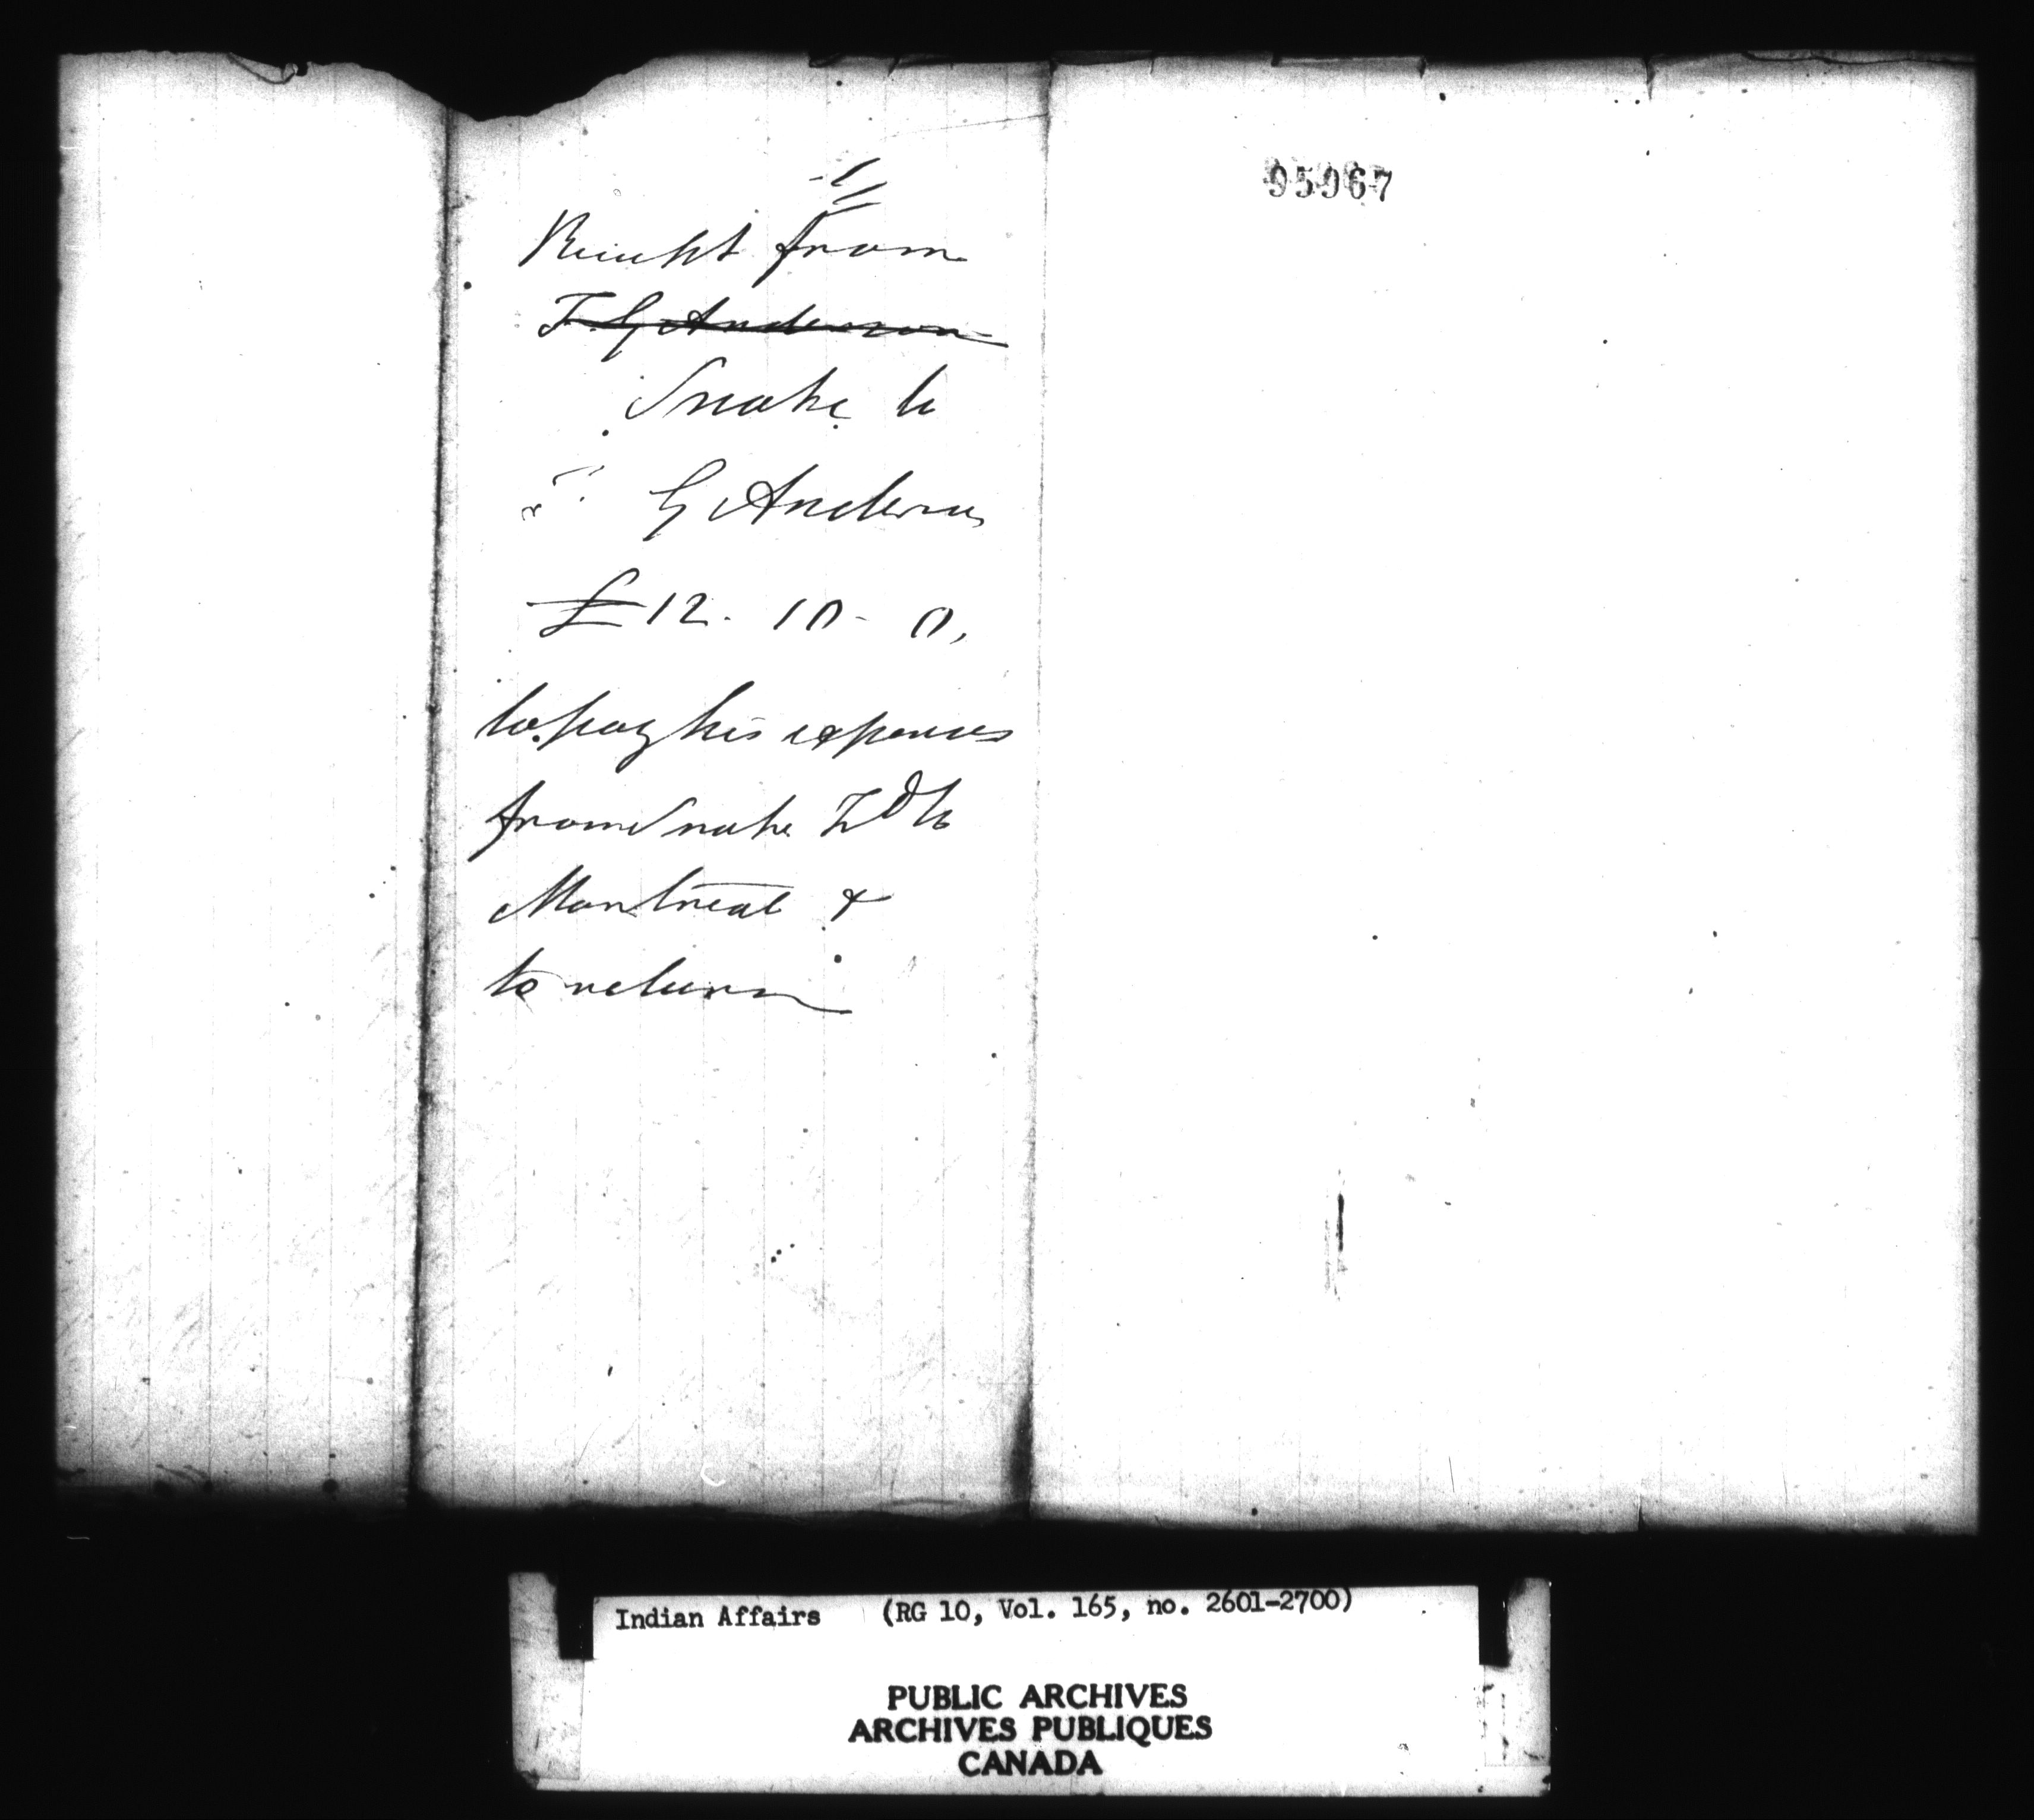 Reciept from
T. G Anderson
Snake to
T. G Anderson
£12. 10 - 0,
to pay his expenses
from Snake Id to
Montreal &
to return
95967
Indian Affairs (RG 10, Vol. 165, no. 2601-2700)
PUBLIC ARCHIVES
ARCHIVES PUBLIQUES
CANADA